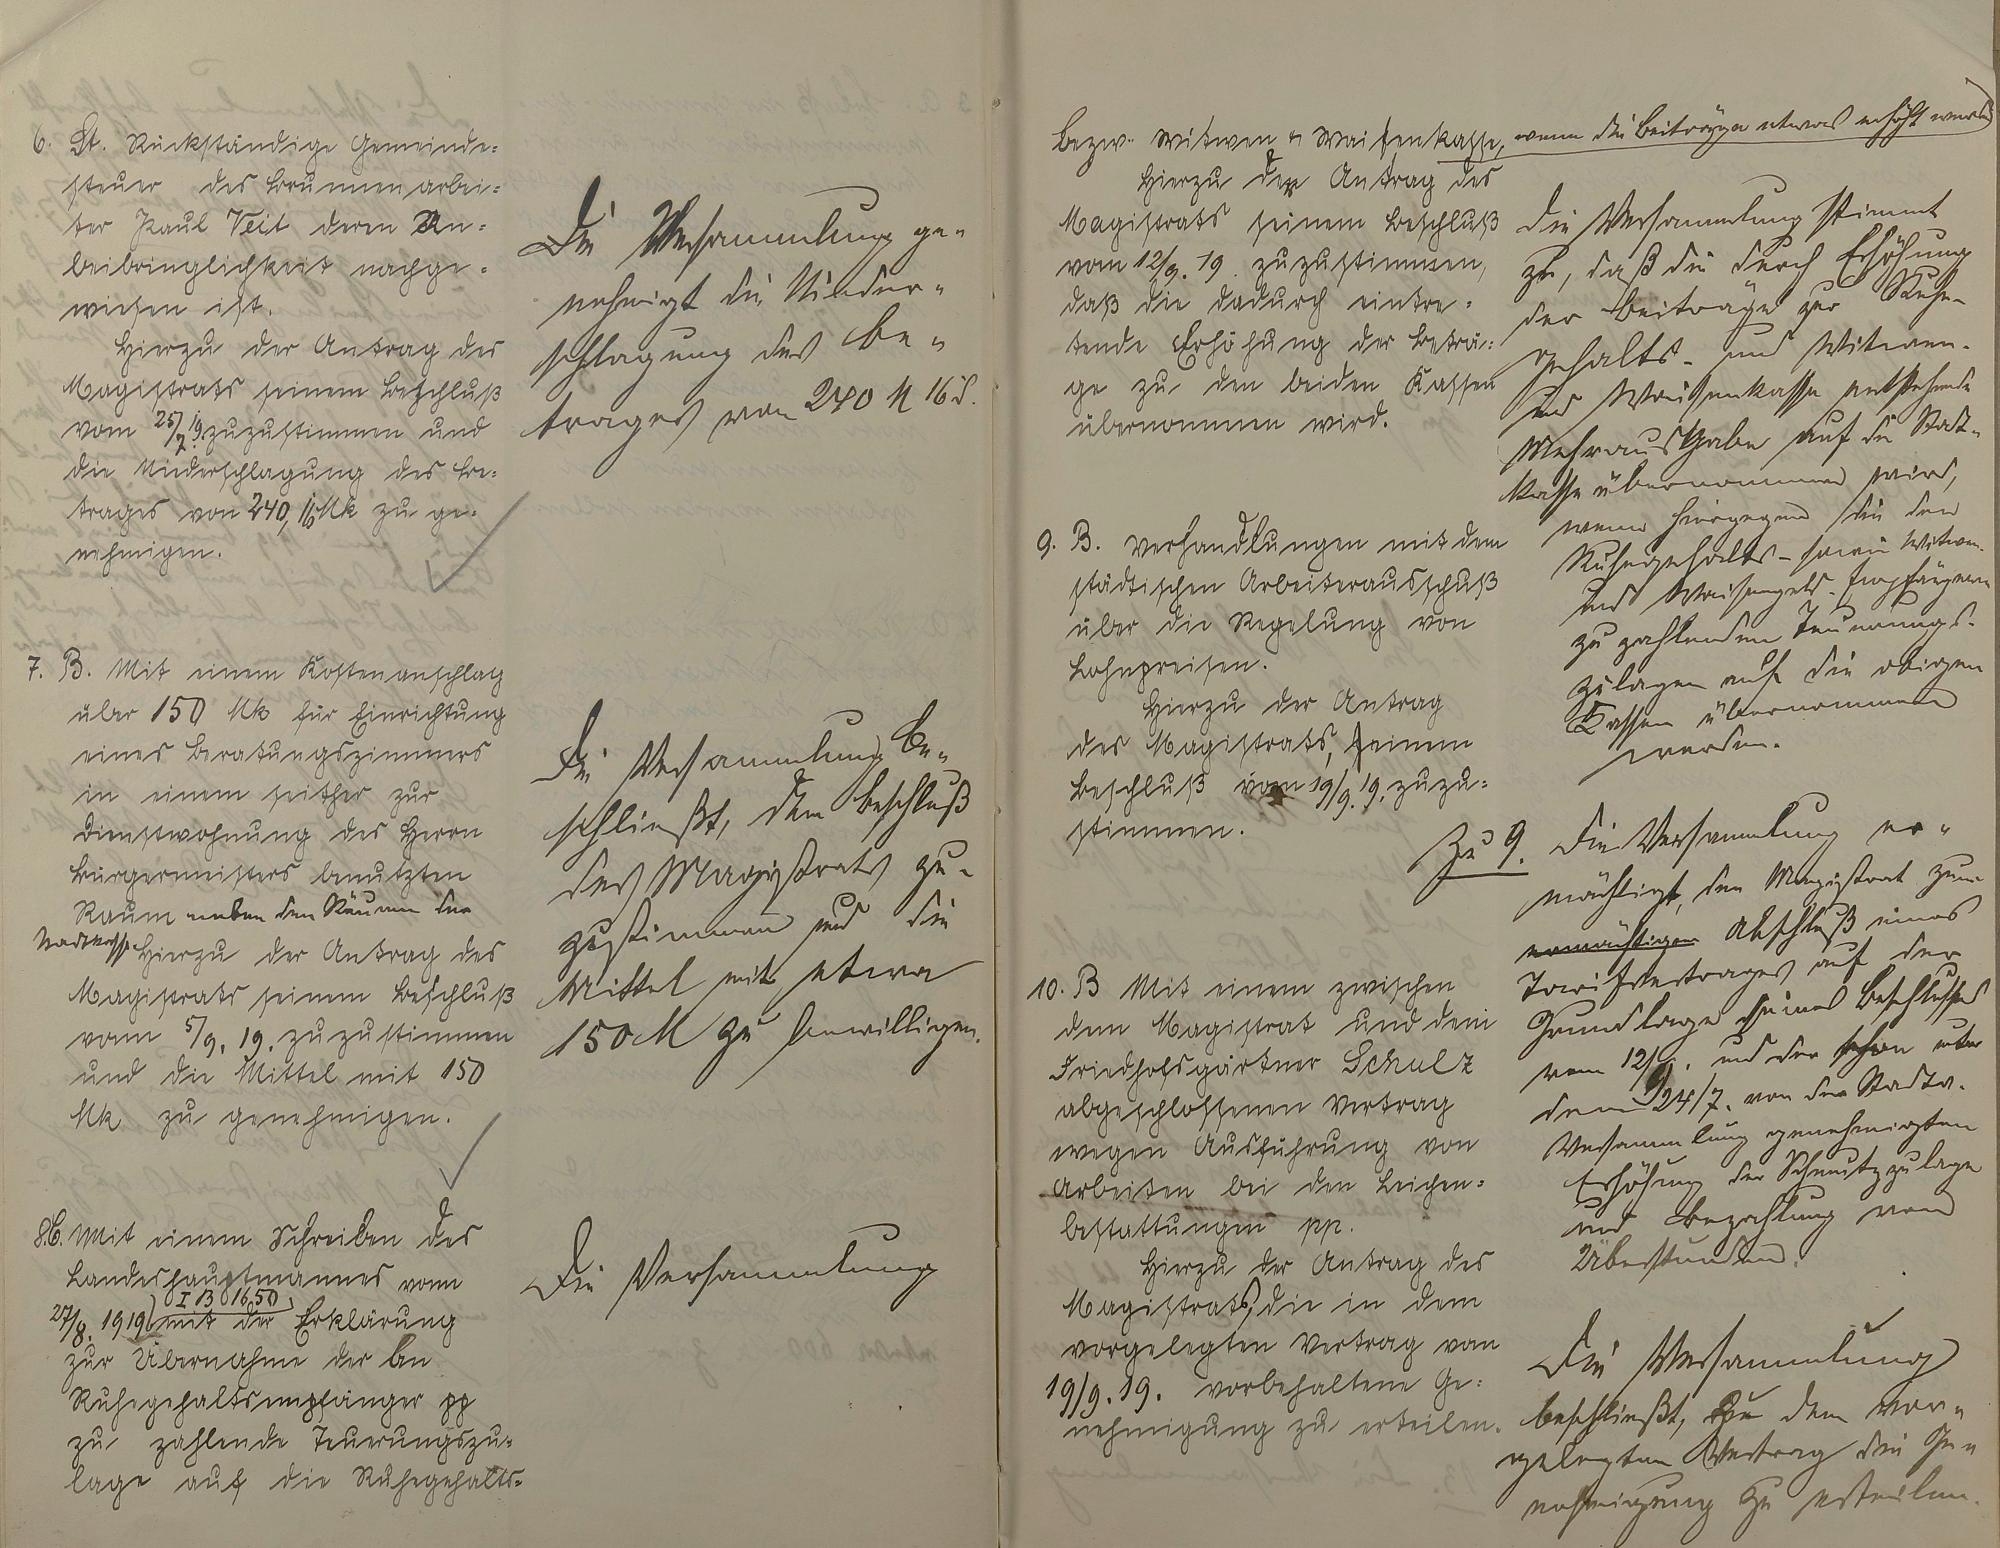 6. St. Rückständige Gemeinde=
steuer des Brunnenarbei=
ter Paul Veit deren Un=
beibringlichkeit nachge=
wiesen ist.
Hierzu der Antrag des
Magistrats seinem Beschluß
vom 25/7.19. zuzustimmen und
die Niederschlagung des Be=
trages von 240,16 Mk zu ge=
nehmigen.
Die Versammlung ge=
nehmigt die Nieder=
schlagung des Be=
trages von 240 M 16 d.
7. B. Mit einem Kostenanschlag
über 150 Mk für Einrichtung
eines Beratungszimmers
in einem seither zur
Dienstwohnung des Herrn
Bürgermeisters benutzten
Raum neben den Räumen der
Stadtkasse
Hierzu der Antrag des
Magistrats seinem Beschluß
vom 5/9. 19. zuzustimmen
und die Mittel mit 150
Mk zu genehmigen.
Die Versammlung be=
schließt, dem Beschluß
des Magistrats zu=
zustimmen und die
Mittel mit etwa
150 M zu bewilligen.
8. C. Mit einem Schreiben des
Landeshauptmannes vom
27/8. 1919 (I B 1650) mit der Erklärung
zur Übernahme der an
Ruhegehaltsempfänger pp
zu zahlende Teuerungszu=
lage auf die Ruhegehalts=
Die Versammlung
bezw. Witwen u Waisenkasse, wenn die Beiträge etwas erhöht werden
Hierzu der Antrag des
Magistrats seinem Beschluß
vom 12/9. 19. zuzustimmen,
daß die dadurch eintre=
tende Erhöhung der Beträ=
ge zu den beiden Kassen
übernommen wird.
Die Versammlung stimmt
zu, daß die durch Erhöhung
der Beiträge zur Ruhe-
gehalts- und Witwen-
und Waisenkasse entstehende
Mehrausgabe auf die Stadt=
kasse übernommen wird,
wenn hiergegen die den
Ruhegehalts- sowie Witwen-
und Waisengeld-Empfängern
zu zahlenden Teuerungs-
zulagen auf die obigen
Kassen übernommen
werden.
9. B. Verhandlungen mit dem
städtischen Arbeiterausschuß
über die Regelung von
Lohnpreisen.
Hierzu der Antrag
des Magistrats, seinem
Beschluß vom 19/9.19. zuzu=
stimmen.
Zu 9. Die Versammlung er=
mächtigt, den Magistrat zum
ermächtigen Abschluß eines
Tarifvertrages auf der
Grundlage seines Beschlusses
vom 12/9. und der schon unter
dem 24/7. von der Stadtv.
Versammlung genehmigten
Erhöhung der Schmutzzulage
und Bezahlung von
Überstunden.
10. B Mit einem zwischen
dem Magistrat und dem
Friedhofsgärtner Schulz
abgeschlossenen Vertrag
wegen Ausführung von
Arbeiten bei den Leichen=
bestattungen pp.
Hierzu der Antrag des
Magistrats, die in dem
vorgelegten Vertrag vom
19/9. 19. vorbehaltene Ge=
nehmigung zu erteilen.
Die Versammlung
beschließt, zu dem vor=
gelegten Vertrag die Ge=
nehmigung zu erteilen.